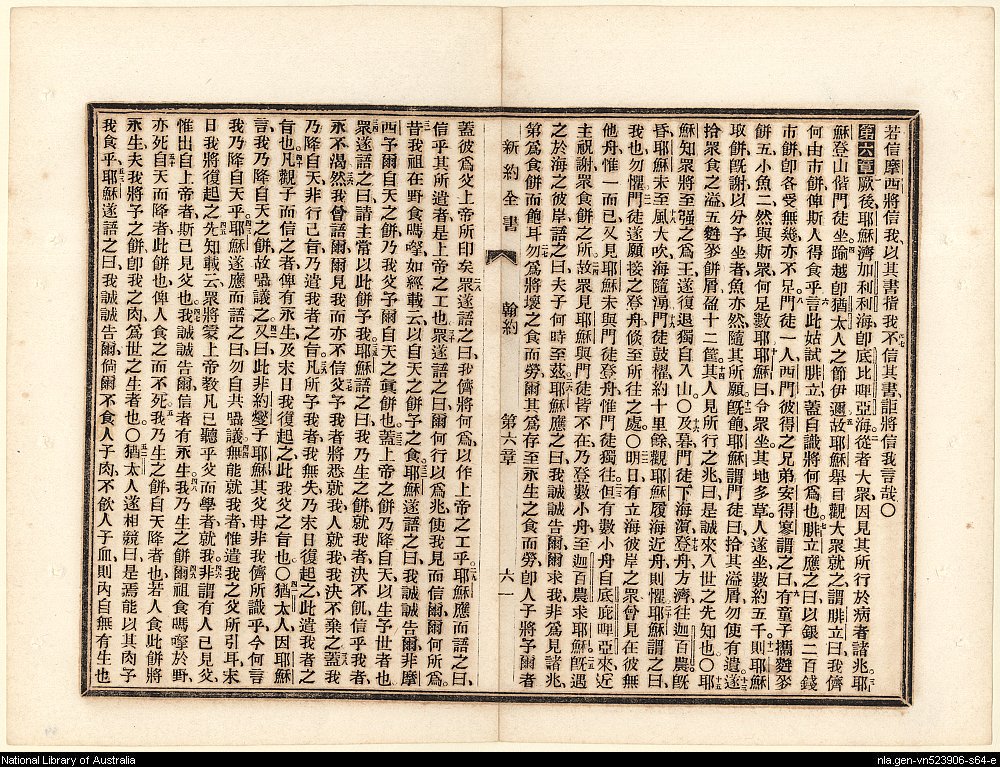 若信摩西將信我、以其書指我、不信其書、詎將信我言哉○
第六章厥後耶穌濟加利利海卽底比啤亞海、從者大眾、因見其所行於病者諸兆、耶
穌登山偕門徒坐、踰越卽猶太人之節伊邇、故耶穌舉目觀大眾就之、謂腓立曰、我儕
何由市餅俾斯人得食乎、言此姑試腓立、蓋自識將何為也、腓立應之曰、以銀二百錢
市餅卽各受無幾亦不足、門徒一人西門彼得之兄弟安得寡謂之曰、有童子攜麰麥
餅五小魚二、然與斯眾何足數耶、耶穌曰、令眾坐、其地多草、人遂坐、數約五千、則耶穌
取餅旣謝、以分予坐者、魚亦然、隨其所願、旣飽、耶穌謂門徒曰、拾其溢屑勿使有遺、遂
拾眾食之溢五麰麥餅屑盈十二筐、其人見所行之兆曰、是誠來入世之先知也○耶
穌知眾將至强之為王、遂復退獨自入山○及暮、門徒下海濱登舟、方濟往迦百農、旣
昏、耶穌未至、風大吹、海隨湧、門徒鼓櫂約十里餘、觀耶穌履海近舟則懼、耶穌謂之曰、
我也勿懼、門徒遂願接之登舟、倐至所往之處○明日有立海彼岸之眾、曾見在彼無
他舟惟一而已、又見耶穌未與門徒登舟、惟門徒獨往、但有數小舟自底庇啤亞來近
主祝謝眾食餅之所、故眾見耶穌與門徒皆不在、乃登數小舟、至迦百農求耶穌、旣遇
之於海之彼岸、語之曰、夫子何時至茲、耶穌應之曰、我誠誠告爾、爾求我非為見諸兆、
第為食餅而飽耳、勿為將壞之食而勞、爾其為存至永生之食而勞、卽人子將予爾者
新約全書 翰約 第六章 六一
蓋彼為父上帝所印矣、眾遂語之曰、我儕將何為以作上帝之工乎、耶穌應而語之曰、
信乎其所遣者、是上帝之工也、眾遂語之曰、爾何行以為兆、使我見而信爾、爾何所為、
昔我祖在野食嗎嗱、如經載云、以自天之餅予之食、耶穌遂語之曰、我誠誠告爾、非摩
西予爾自天之餅、乃我父予爾自天之眞餅也、蓋上帝之餅乃降自天以生予世者也、
眾遂語之曰、請主常以此餅予我、耶穌語之曰、我乃生之餅、就我者決不飢、信乎我者、
永不渴、然我曾語爾、爾見我而亦不信、父予我者將悉就我、人就我、我決不棄之、蓋我
乃降自天非行己旨、乃遣我者之旨、凡所予我者、我無失、乃末日復起之、此遣我者之
旨也、凡觀子而信之者、俾有永生、及末日我復起之、此我父之旨也○猶太人因耶穌
言我乃降自天之餅、故囁議之、又曰、此非約爕子耶穌、其父母非我儕所識乎、今何言
我乃降自天乎、耶穌遂應而語之曰、勿自共囁議、無能就我者、惟遣我之父所引耳、末
日我將復起之、先知載云、眾將蒙上帝教、凡已聽乎父而學者、就我、非謂有人已見父、
惟出自上帝者、斯已見父也、我誠誠告爾、信者有永生、我乃生之餅、爾祖食嗎嗱於野、
亦死、自天而降者此餅也、俾人食之而不死、我乃生之餅自天降者也、若人食此餅將
永生、夫我將予之餅卽我之肉、為世之生者也○猶太人遂相競曰、是焉能以其肉予
我食乎、耶穌遂語之曰、我誠誠告爾、倘爾不食人子肉、不飲人子血、則內自無有生也
National Library of Australia
nla.gen-vn523906-s64-e